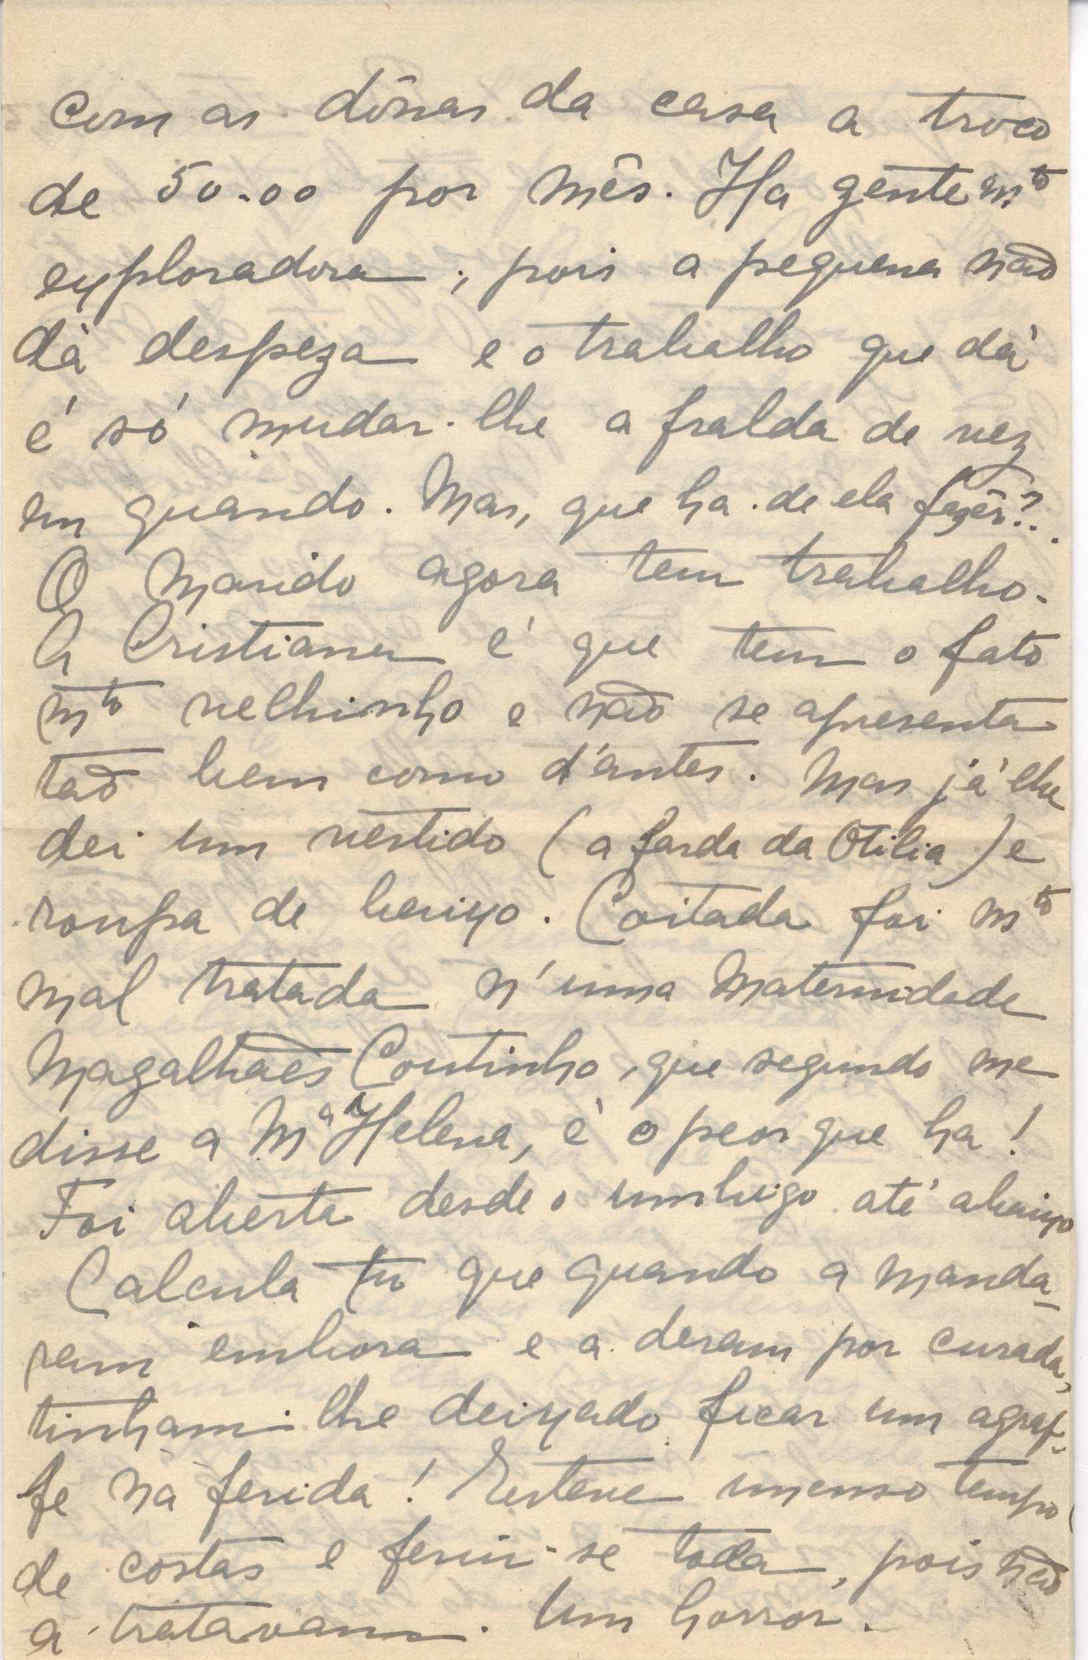 com as dônas da casa a troco
de 50.00 por mês. Ha gente mto
exploradora, pois a pequena não
dá despeza e o trabalho que dá
é só mudar-lhe a fralda de vez
em quando. Mas, que ha-de ela fazêr?.
O marido agora tem trabalho.
A Cristiana é que tem o fato
mto velhinho e não se apresenta
tão bem como d'antes. Mas já lhe
dei um vestido (a farda da Otilia) e
roupa de baixo. Coitada foi mto
mal tratada n'uma Maternidade
Magalhães Coutinho, que segundo me
disse a Mª Helena, é o peor que ha!
Foi aberta desde o umbigo até abaixo
Calcula tu que quando a manda-
ram embora e a deram por curada,
tinham-lhe deixado ficar um agraf-
fe na ferida! Esteve imenso tempo
de costas e feriu-se toda, pois não
a tratavam. Um horror.